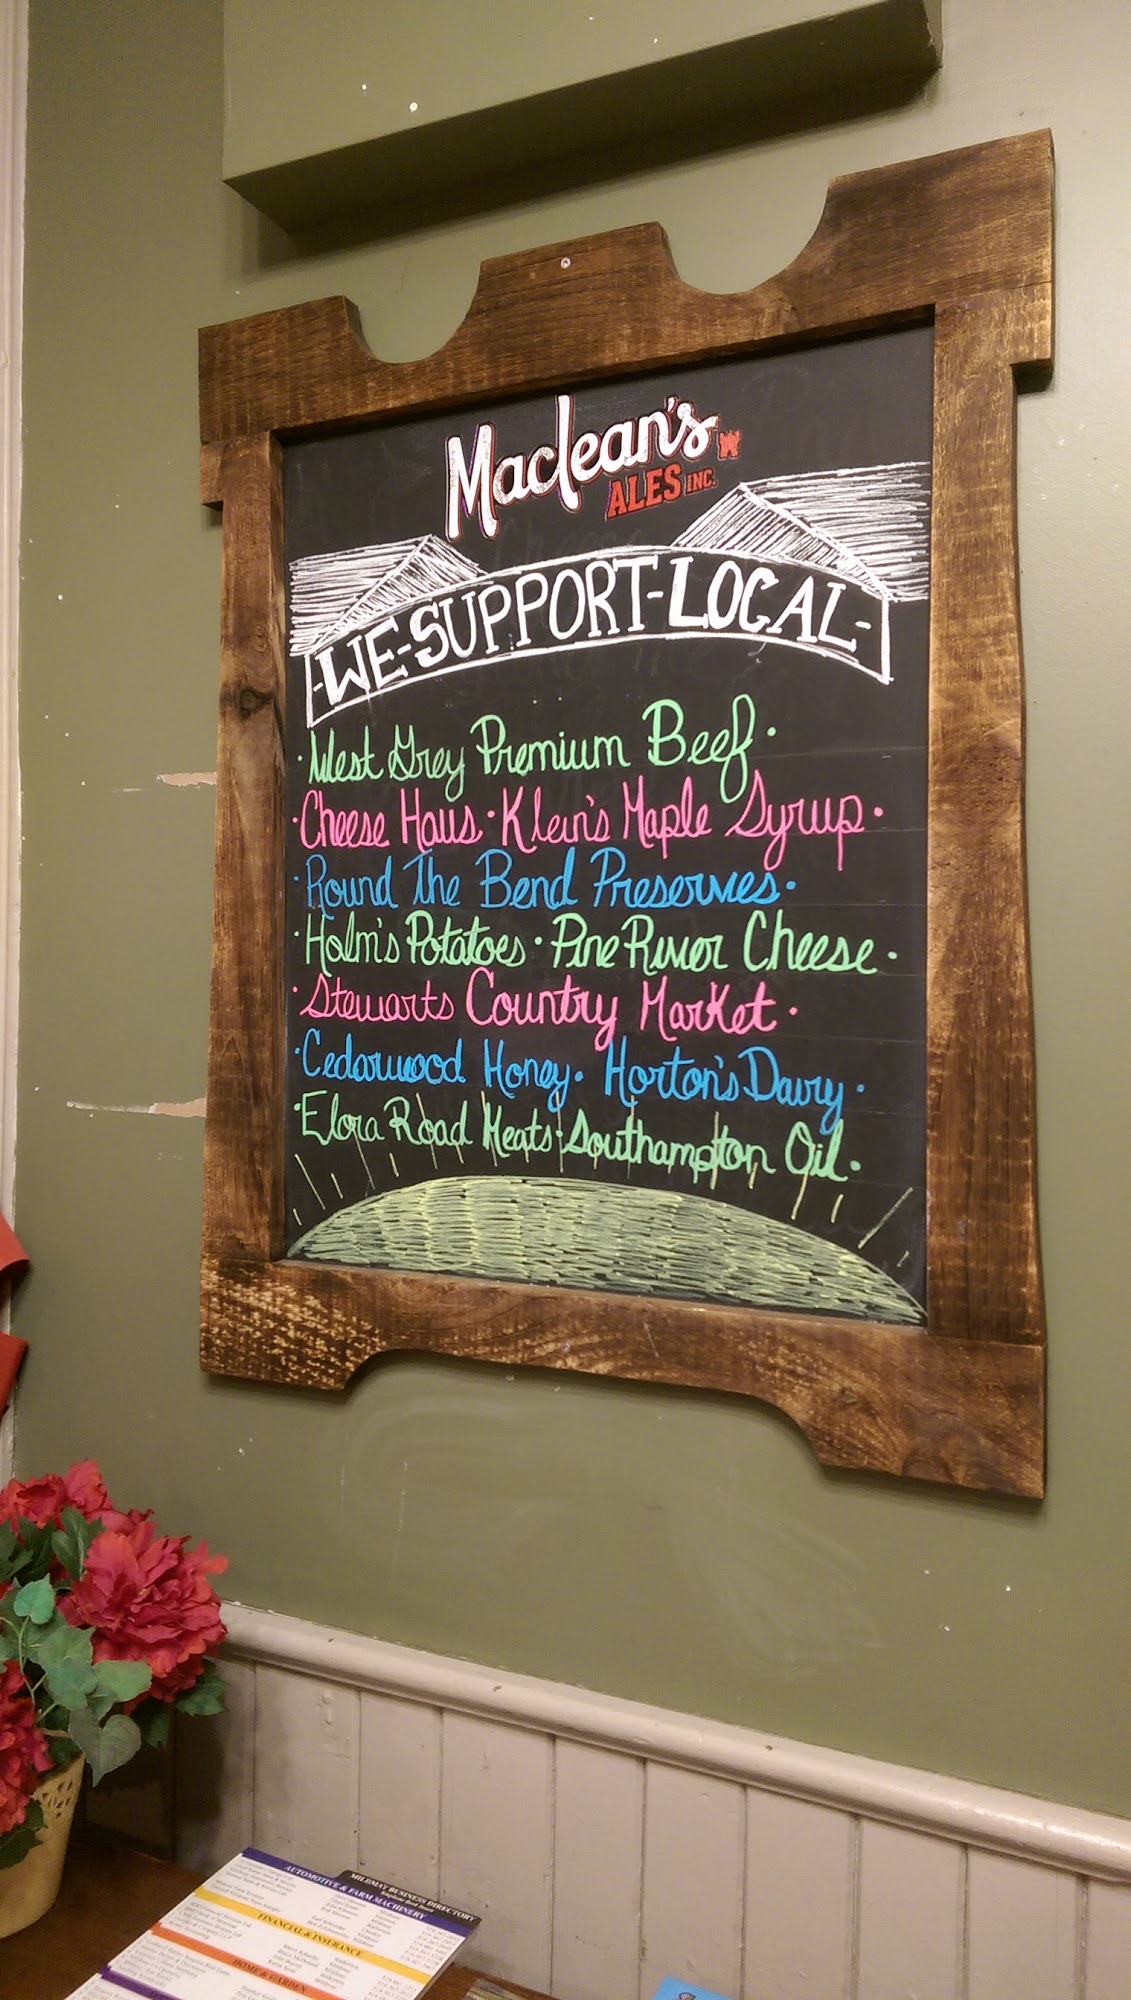 Maclean's
ALES INC.
-WE-SUPPORT-LOCAL-
·West Grey Premium Beef·
·Cheese Haus·Klein's Maple Syrup·
·Round The Bend Preserves·
·Holm's Potatoes·Pine River Cheese·
·Stewarts Country Market·
·Cedarwood Honey·Horton's Dairy·
·Elora Road Meats·Southampton Oil·
MILDMAY BUSINESS DIRECTORY
AUTOMOTIVE & FARM MACHINERY
FINANCIAL & INSURANCE
HOME & GARDEN